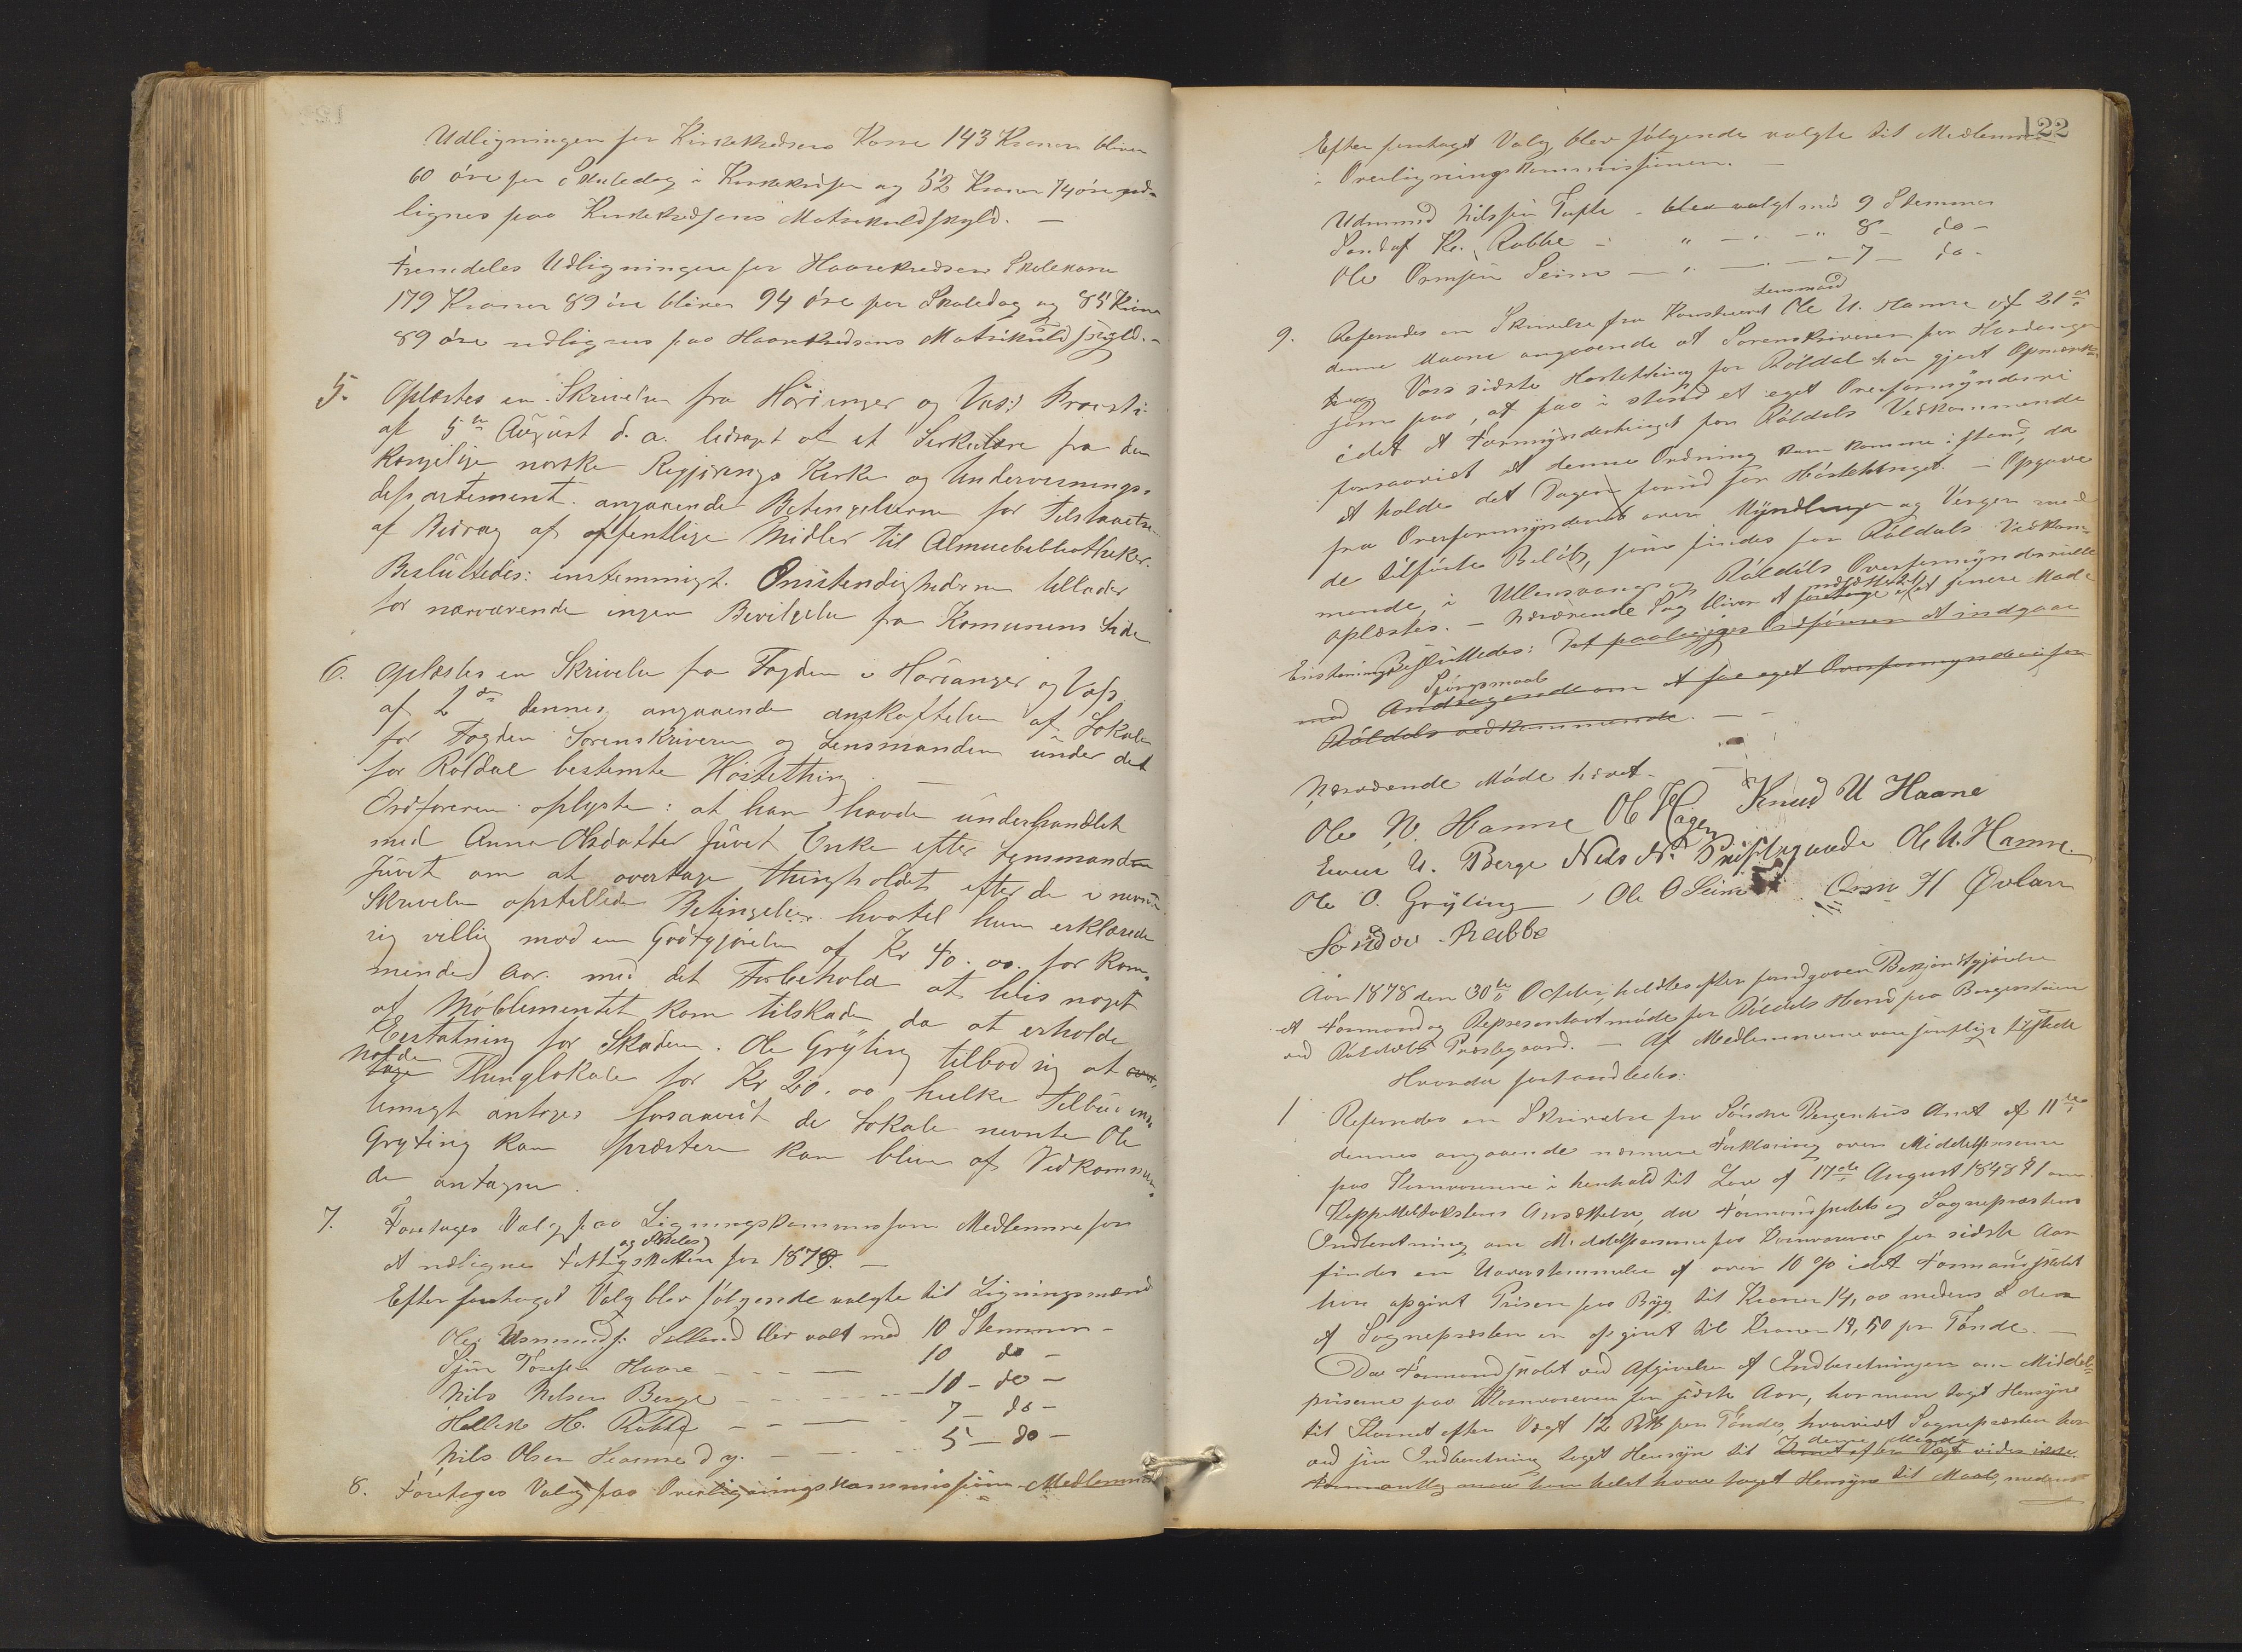 Udligningen for Kirkekredsens Kasse 143 Kroner bliver
60 øre per Skoledag i Kirkekredsen og 52 Kroner 74 øre ud-
lignes paa Kirkekredsens Matrikulskyld. —
Fremdeles Udligningen for Haarekredsens Skolekasse
179 Kroner 89 øre bliver 94 øre per Skoledag og 85 Kroner
89 øre udlignes paa Haarekredsens Matrikulskyld. —
5. Oplæstes en Skrivelse fra Hardanger og Vos's Provsti
af 5te August d. a. ledsaget af et Cirkulære fra den
Kongelige norske Regjerings Kirke og Undervisnings-
departement angaaende Betingelserne for Tilstaaelse
af Bidrag af offentlige Midler til Almuebibliotheker.
Besluttedes: enstemmigt. Omstendighederne tillader
for nærværende ingen Bevilgelse fra Komunens Side
6. Oplæstes en Skrivelse fra Fogden i Hardanger og Voss
af 2den dennes angaaende anskaffelse af Lokale
for Fogden Sorenskriveren og Lensmanden under det
for Röldal bestemte Høstething. —
Ordføreren oplyste: at han havde underhandlet
med Anna Olsdatter Juvet Enke efter Lensmand
Juvet om at overtage thingholdet efter de i nevnte
Skrivelse opstillede Betingelser hvortil hun erklærede
sig villig mod en Godtgjørelse af Kr 40.00 for kom-
mende Aar. med det Forbehold at hvis noget
af Möblementet kom tilskade da at erholde
Erstatning for Skaden. Ole Gryting tilbød sig at
holde Thinglokale for Kr 20.00 hvilke Tilbud ens-
temmigt antoges forsaavidt de Lokale nevnte Ole
Gryting kan præstere kan blive af Vedkommen-
de antagne.
7. Foretoges Valg paa Ligningskommissions Medlemmer for
at udligne Fattig og Skoleskatten for 1879. —
Efter foretaget Valg blev følgende valgte til Ligningsmænd
Ole Asmundsen Solland blev valt med 10 Stemmer —
Sjur Tosefsen Haare — — — 10 do —
Nils Nilsen Berge — — — 10 — do —
Hellik H. Rabbe — — — 7 — do —
Nils Olsen Hamre d y. — — — 5 — do —
8. Foretoges Valg paa Overligningskommissions Medlemmer
122
Efter foretaget Valg blev følgende valgte til Medlemmer
i Overligningskommissionen. —
Udmund Nilsen Tufte — blev valgt med 9 Stemmer
Sondof Kn. Rabbe — " — " — " 8 — do —
Ole Ormsen Seim — " — — 7 — do —
9. Refereredes en Skrivelse fra Konstitueret Lensmand Ole N. Hamre af 21de
denne Maaned angaaende at Sorenskriveren for Hardanger
og Voss sidste Høstething for Röldal har gjort Opmærk-
som paa, at faa i stand et eget Overformynderi
idet at Formynderthinget for Röldals Vedkommende
forsaavidt at denne Ordning kan komme i stand, da
at holde det Dagen forud for Høstethinget. — Opgave
fra Overformynderiet over Myndlinger og Verger med
de tilførte Beløb, som findes for Röldals Vedkom-
mende, i Ullensvang og Röldals Overformynderrulle
oplæstes. — Nærværende Sag bliver at udsættes til et senere Møde
Enstemmigt Besluttedes: Det paalegges Ordføreren at indgaae
med Spørgsmaal Andragende om at faa eget Overformynderi for
Röldals vedkommende. — —
Nærværende Møde hævet. —
Ole N. Hamre Ole Hagen Knud U Haare
Even U. Berge Nils N. Prestegaarde Ole N. Hamre
Ole O. Gryting, Ole O Seim Orm H Øvland
Søndov Rabbe
Aar 1878 den 30te October, holdtes efter forudgaaen Bekjendtgjørelse
et Formand og Representantmøde for Röldals Herred paa Borgerstuen
ved Röldals Præstegaard. — Af Medlemmerne vare samtlige tilstede
Hvorda forhandledes:
1 Refereredes en Skrivelse fra Söndre Bergenhus Amt af 11te
dennes angaaende nærmere Forklaring over Middelpriserne
paa Kornvarerne i henhold til Lov af 17de August 1848 § 1 om
Kapiteltakstens Ansættelse, da Formandskabets og Sognepræstens
Indberetning om Middelpriserne paa Kornvarerne for sidste Aar
findes en Uoverstemmelse af over 10 % idet Formandskabet
har opgivet Prisen paa Byg til Kroner 14,00 medens den
af Sognepræsten er opgivet til Kroner 19,50 per Tønde. —
Da Formandskabet ved Afgivelse af Indberetningen om Middel-
priserne paa Kornvarerne for sidste Aar, har man taget Hensyn
til Kornet efter Vægt 12 Pd per Tønde, hvorvidt Sognepræsten har
ved sin Indberetning taget Hensyn til denne Mængde Kornet efter Vægt vides ikke
Formentlig maa han helst have taget Hensyn til Maal, medens